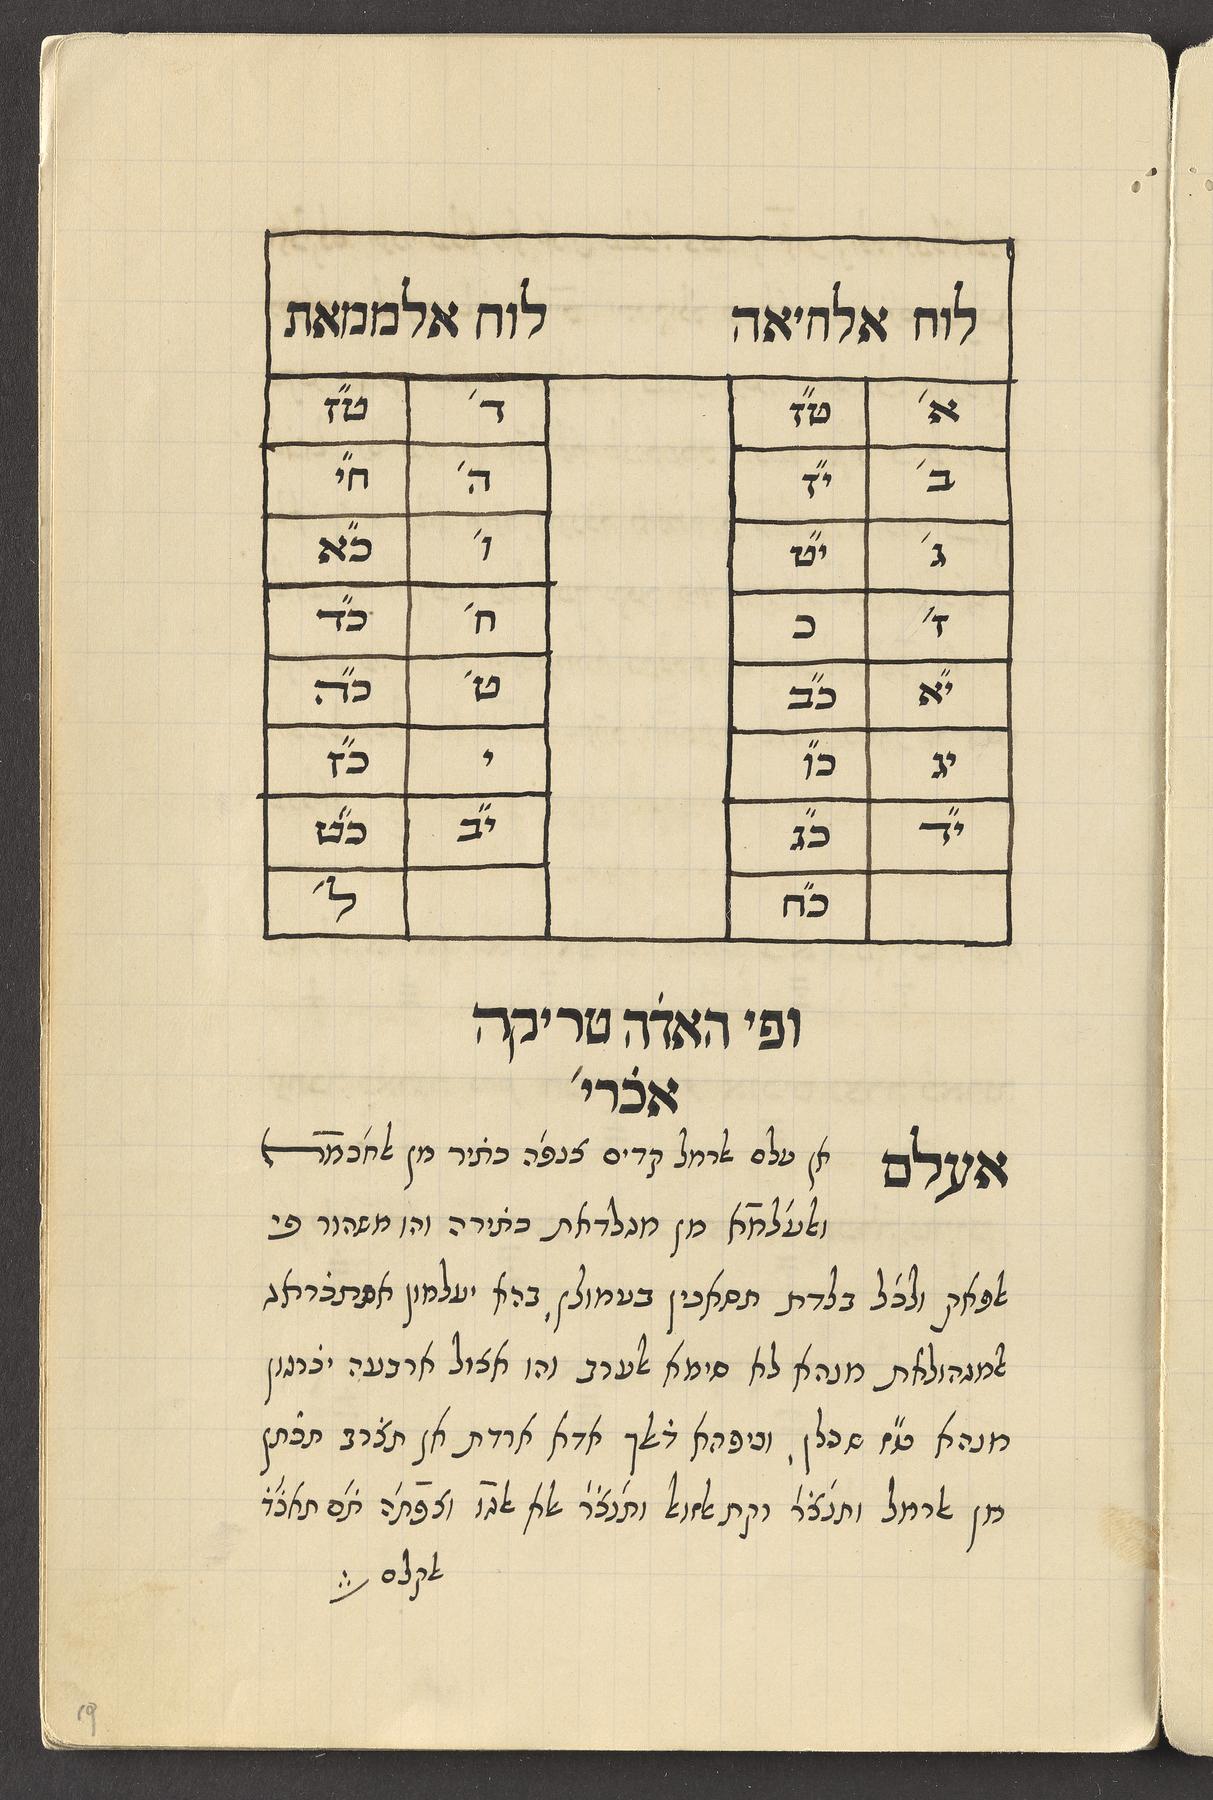 לוח אלחיאה לוח אלממאת
א׳ ט״ז ד׳ ט״ז
ב׳ י״ז ה׳ ח״י
ג׳ י״ט ו׳ כ״א
ז׳ כ ח׳ כ״ד
י״א כ״ב ט׳ כ״ה
יג כ״ו י כ״ז
י״ד כ״ג י״ב כ״ט
כ״ח ל׳
ופי האד̇ה טריקה
אכ̇רי׳
אעלם אן עלם ארמל קדים צנפה כת̇יר מן
ואעלמא מן מג̇לדאת כת̇ירה והו משהור פי
אפאק ולכל בלדת תסאכין בעמולן, בהא יעלמון אסתכ̇ראג̇
אמג̇הולאת מנהא לא סימא אערב והו אצול ארבעה יכ̇רג̇ון
מנהא ט״ז שכלן, וכיפהא ד̇אך אדא ארדת אן תצ̇רב תכ̇תן
מן ארמל ותנצ̇ר וקת ותנצ̇ר אלא וצפתה ת̇ם תאכ̇ד̇
אקלם
19